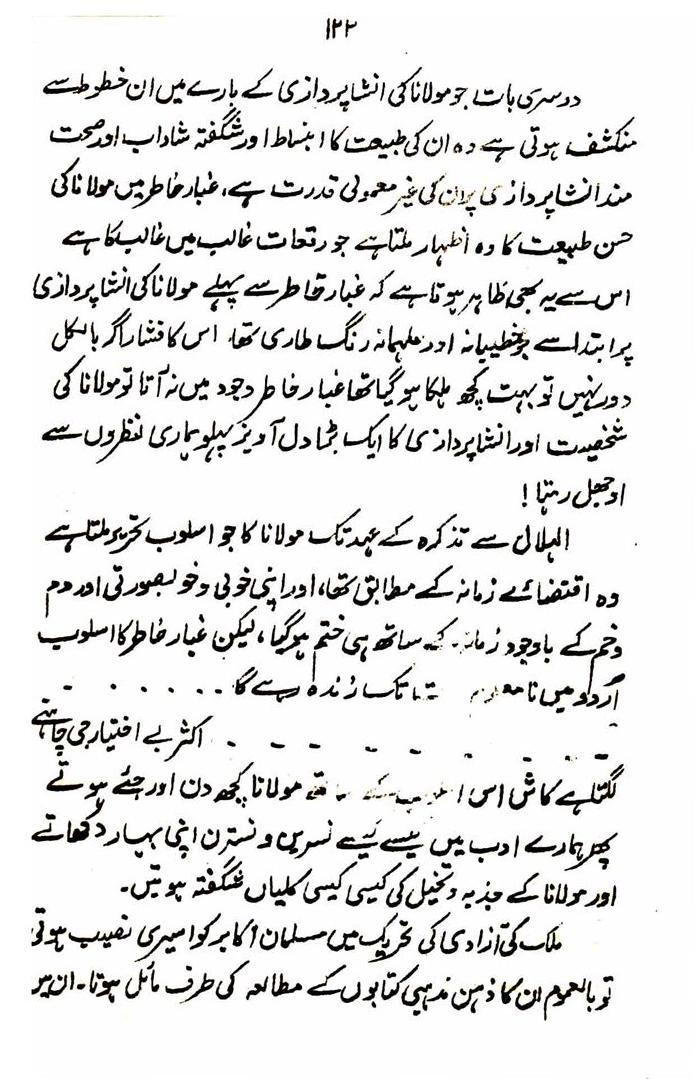 ۱۲۲
دوسری بات جو مولانا کی انشا پردازی کے بارے میں ان خطوط سے
منکشف ہوتی ہے وہ ان کی طبیعت کا انبساط اور شگفتہ شاداب اور صحت
مند انشا پردازی پر ان کی غیر معمولی قدرت ہے، غبار خاطر میں مولانا کی
حسن طبیعت کا وہ اظہار ملتا ہے جو رقعات غالب میں غالب کا ہے
اس سے یہ بھی ظاہر ہوتا ہے کہ غبار خاطر سے پہلے مولانا کی انشا پردازی
پر ابتدا سے جو خطیبانہ اور ملہمانہ رنگ طاری تھا اس کا فشار اگر بالکل
دور نہیں تو بہت کچھ ہلکا ہو گیا تھا غبار خاطر وجود میں نہ آتا تو مولانا کی
شخصیت اور انشا پردازی کا ایک بڑا دل آویز پہلو ہماری نظروں سے
اوجھل رہتا !
الہلال سے تذکرہ کے عہد تک مولانا کا جو اسلوب تحریر ملتا ہے
وہ اقتضائے زمانہ کے مطابق تھا، اور اپنی خوبی و خوبصورتی اور دم
و خم کے باوجود زمانہ کے ساتھ ہی ختم ہو گیا، لیکن غبار خاطر کا اسلوب
اُردو میں نامعلوم تک زندہ رہے گا . . . . . . .
- - - - - - - - اکثر بے اختیار جی چاہنے
لگتا ہے کاش اس اسلوب کے ساتھ مولانا کچھ دن اور جئے ہوتے
پھر ہمارے ادب میں کیسے کیسے نسرین و نسترن اپنی بہار دکھاتے
اور مولانا کے جذبہ و تخیل کی کیسی کیسی کلیاں شگفتہ ہوتیں۔
ملک کی آزادی کی تحریک میں مسلمان اکابر کو اسیری نصیب ہوتی
تو بالعموم ان کا ذہن مذہبی کتابوں کے مطالعہ کی طرف مائل ہوتا۔ ان میں